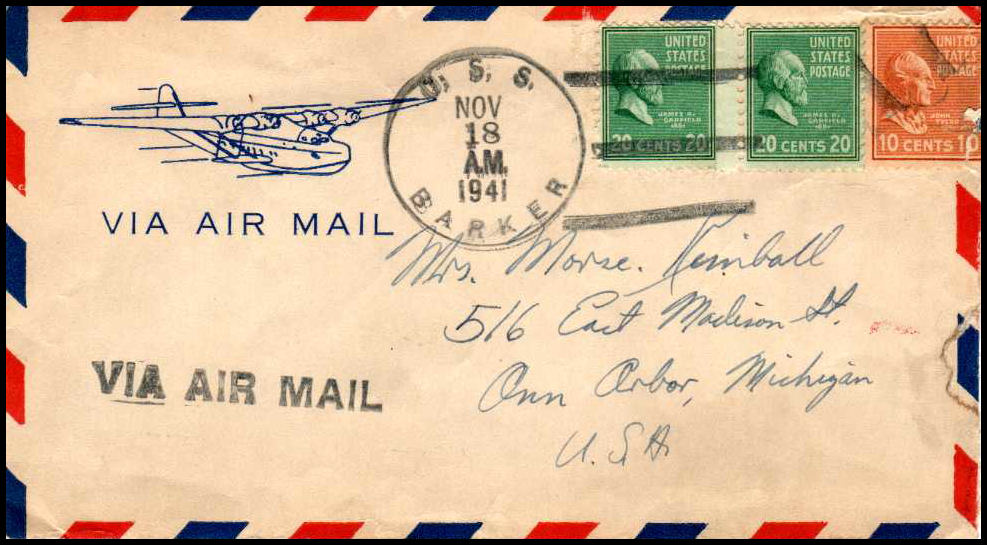 U. S. S.
NOV
18
A.M.
1941
BARKER
UNITED
STATES
POSTAGE
JAMES A.
GARFIELD
20 CENTS 20
UNITED
STATES
POSTAGE
JAMES A.
GARFIELD
20 CENTS 20
UNITED
STATES
POSTAGE
JOHN
TYLER
10 CENTS 10
VIA AIR MAIL
Mrs. Morse. Kimball
516 East Madison St.
Ann Arbor, Michigan
U.S.A.
VIA AIR MAIL